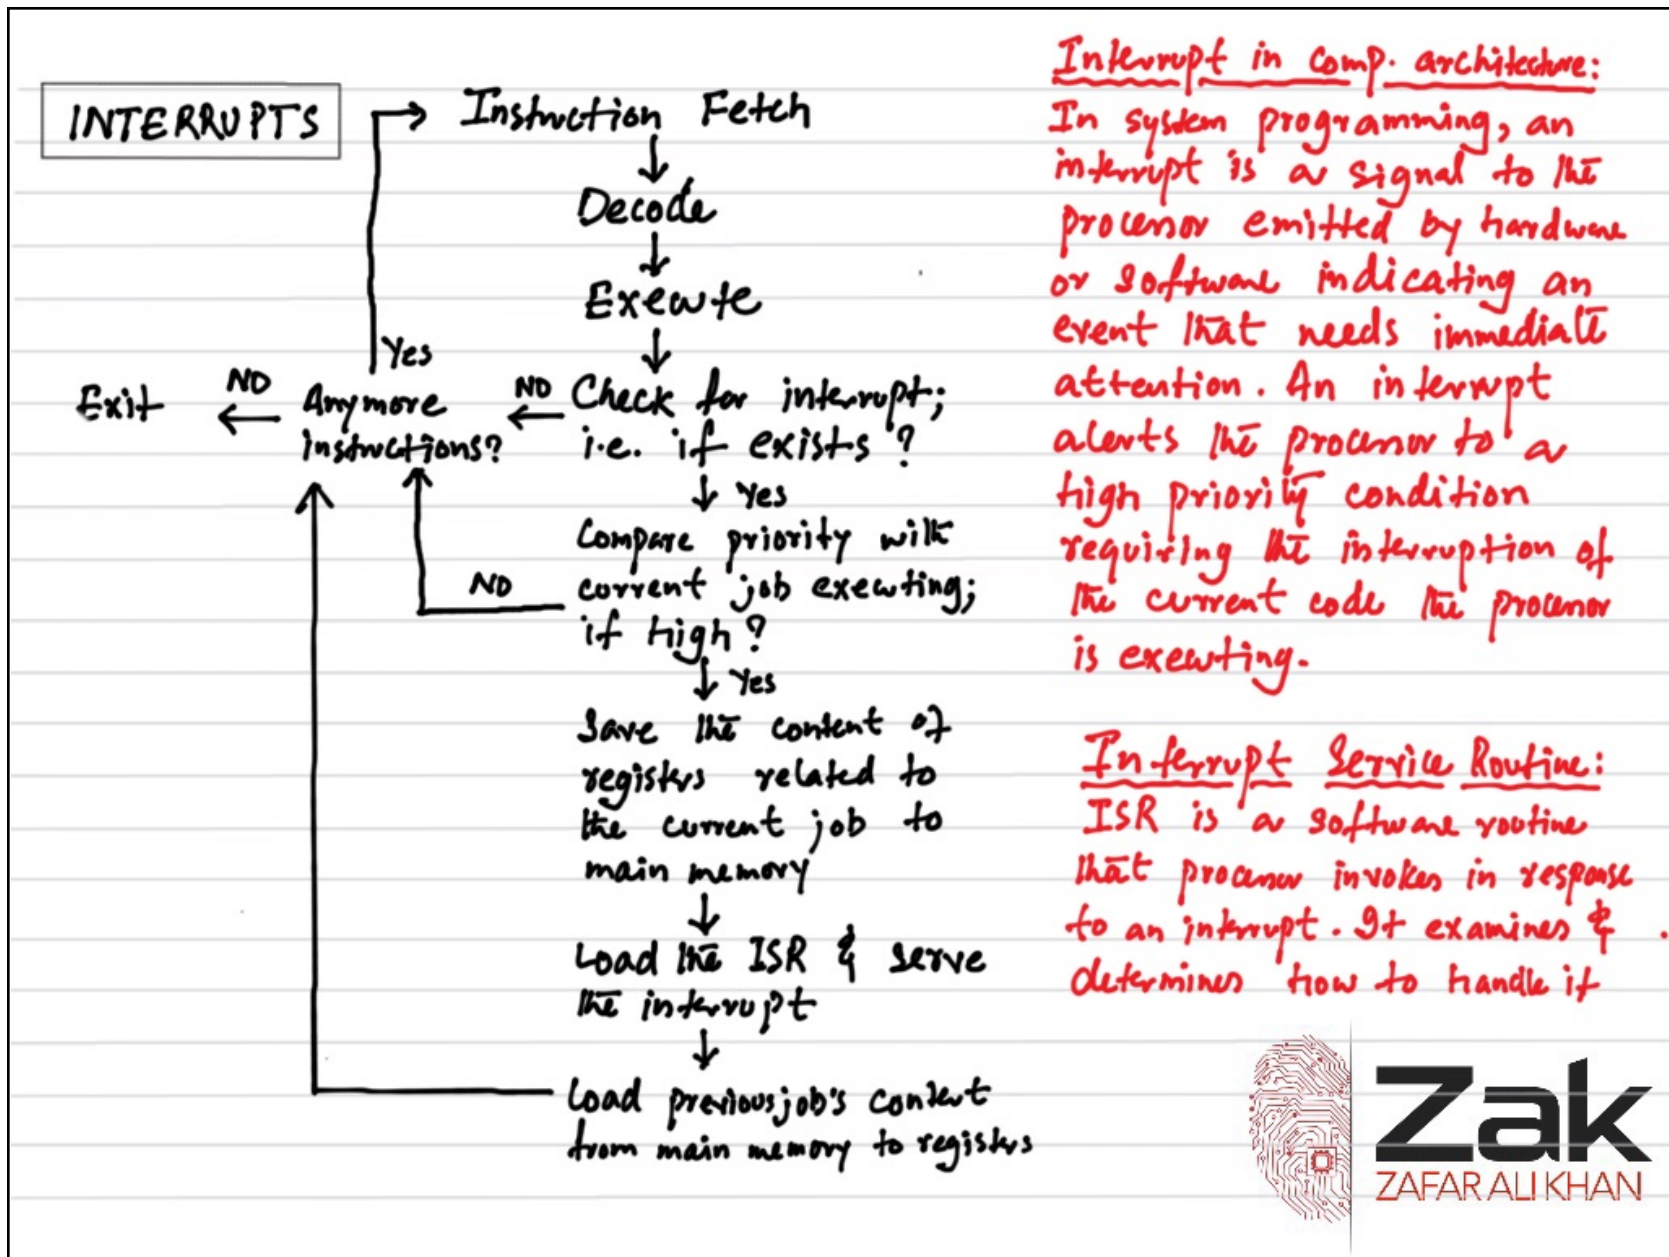 INTERRUPTS
Instruction Fetch
Decode
Execute
Yes
Exit
NO
Anymore
instructions?
NO
Check for interrupt;
i.e. if exists?
Yes
Compare priority with
current job executing;
if high?
NO
Yes
Save the content of
registers related to
the current job to
main memory
Load the ISR & serve
the interrupt
Load previous job's content
from main memory to registers
Interrupt in comp. architecture:
In system programming, an
interrupt is a signal to the
processor emitted by hardware
or software indicating an
event that needs immediate
attention. An interrupt
alerts the processor to a
high priority condition
requiring the interruption of
the current code the processor
is executing.
Interrupt Service Routine:
ISR is a software routine
that processor invokes in response
to an interrupt. It examines &
determines how to handle it
Zak
ZAFAR ALI KHAN